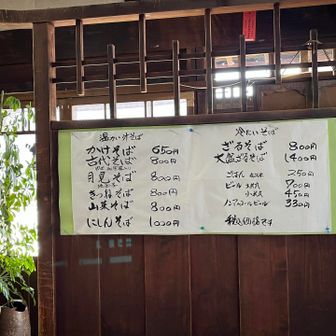 温かい汁そば
かけそば 650円
古代そば 800円
月見そば 800円
きつねそば 800円
山菜そば 800円
にしんそば 1000円
冷たいそば
ざるそば 800円
大盛ざるそば 1400円
ごはん 250
ビール 大瓶 700
小瓶 450
ノンアルコールビール 330
税込価格です